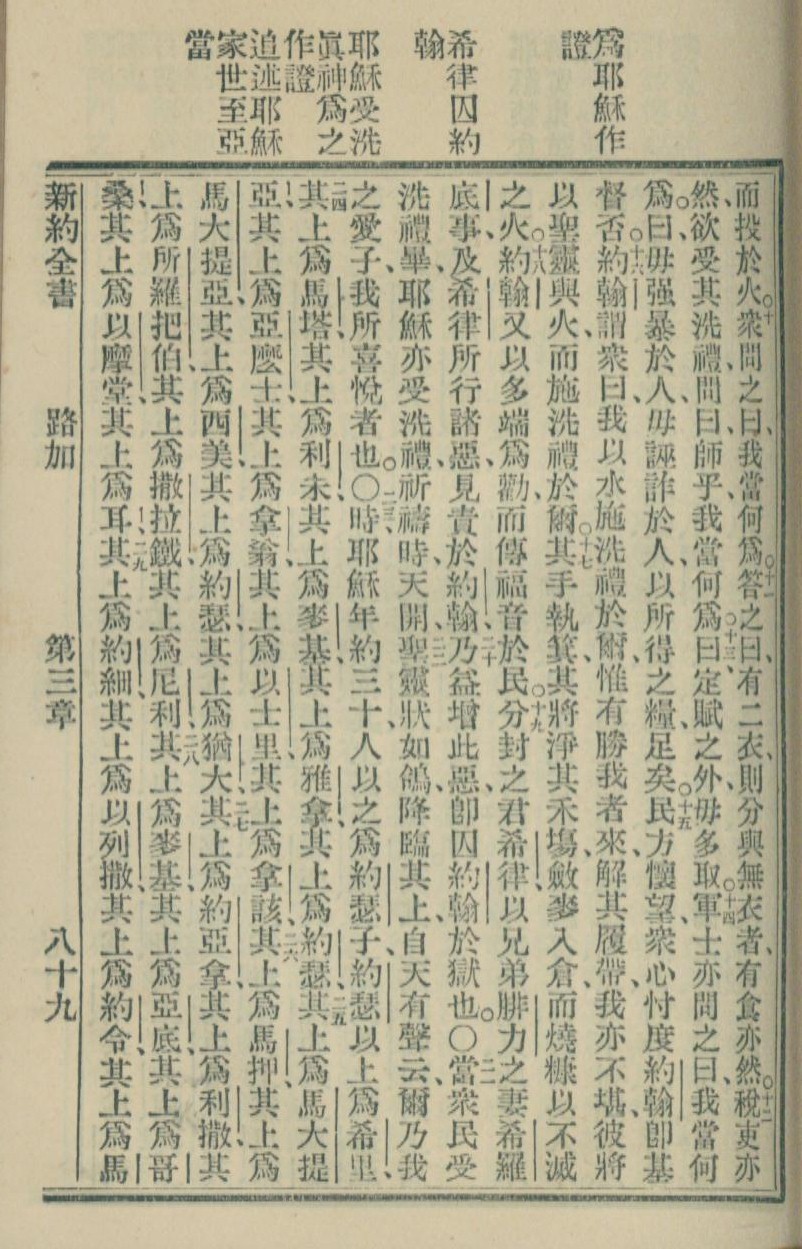 爲耶穌作
證
希律囚約
翰
耶穌受洗
眞神爲之
作證
追述耶穌
家世至亞
當
而投於火、○十衆問之曰、我當何爲、○十一答之曰、有二衣、則分與無衣者、有食亦然、○十二稅吏亦
然、欲受其洗禮、問曰、師乎、我當何爲、○十三曰、定賦之外、毋多取、○十四軍士亦問之曰、我當何
爲、曰、毋强暴於人、毋誣詐於人、以所得之糧足矣、○十五民方懷望、衆心忖度約翰卽基
督否、○十六約翰謂衆曰、我以水施洗禮於爾、惟有勝我者來、解其履帶、我亦不堪、彼將
以聖靈與火、而施洗禮於爾、○十七其手執箕、其將淨其禾塲、斂麥入倉、而燒糠以不滅
之火、○十八約翰又以多端爲勸、而傳福音於民、○十九分封之君希律、以兄弟腓力之妻希羅
底事、及希律所行諸惡、見責於約翰、二十乃益增此惡、卽囚約翰於獄也。○二一當衆民受
洗禮畢、耶穌亦受洗禮、祈禱時、天開、二二聖靈狀如鴿、降臨其上、自天有聲云、爾乃我
之愛子、我所喜悅者也。○二三時耶穌年約三十、人以之爲約瑟子、約瑟以上爲希里、
二四其上爲馬塔、其上爲利未、其上爲麥基、其上爲雅拿、其上爲約瑟、二五其上爲馬大提
亞、其上爲亞麼士、其上爲拿翁、其上爲以士里、其上爲拿該、二六其上爲馬押、其上爲
馬大提亞、其上爲西美、其上爲約瑟、其上爲猶大、二七其上爲約亞拿、其上爲利撒、其
上爲所羅把伯、其上爲撒拉鐵、其上爲尼利、二八其上爲麥基、其上爲亞底、其上爲哥
桑、其上爲以摩堂、其上爲耳、二九其上爲約細、其上爲以列撒、其上爲約令、其上爲馬
新約全書 路加 第三章 八十九